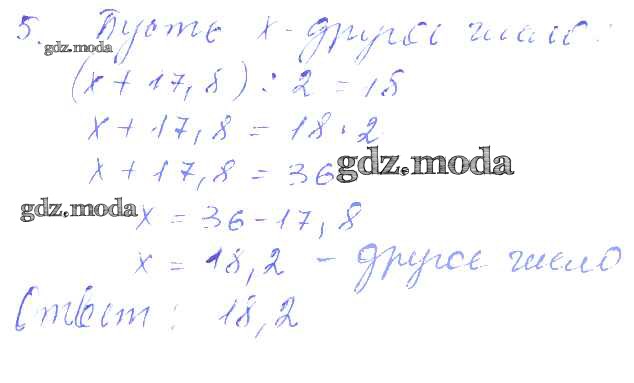 5. Пусть x - другое число:
gdz.moda
(x + 17,8) : 2 = 18
x + 17,8 = 18 · 2
x + 17,8 = 36
gdz.moda
gdz.moda
x = 36 - 17,8
x = 18,2 - другое число
Ответ: 18,2